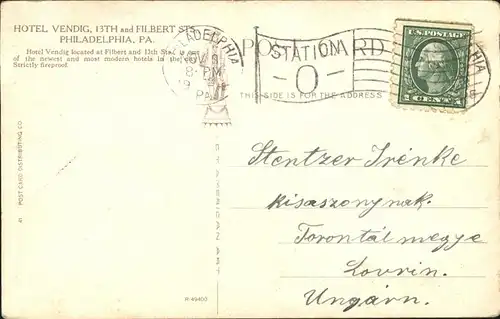 HOTEL VENDIG, 13TH and FILBERT STS.
PHILADELPHIA, PA.
Hotel Vendig located at Filbert and 13th Sts.
of the newest and most modern hotels in the
Strictly fireproof.
PHILADELPHIA
NOV
8-PM
PA.
POST CARD
STATION
O
THIS SIDE IS FOR THE ADDRESS
U.S. POSTAGE
1 CENT 1
Stentzer Irénke
kisaszonynak.
Torontál megye
Lovrin.
Ungárn.
POST CARD DISTRIBUTING CO
R-49400